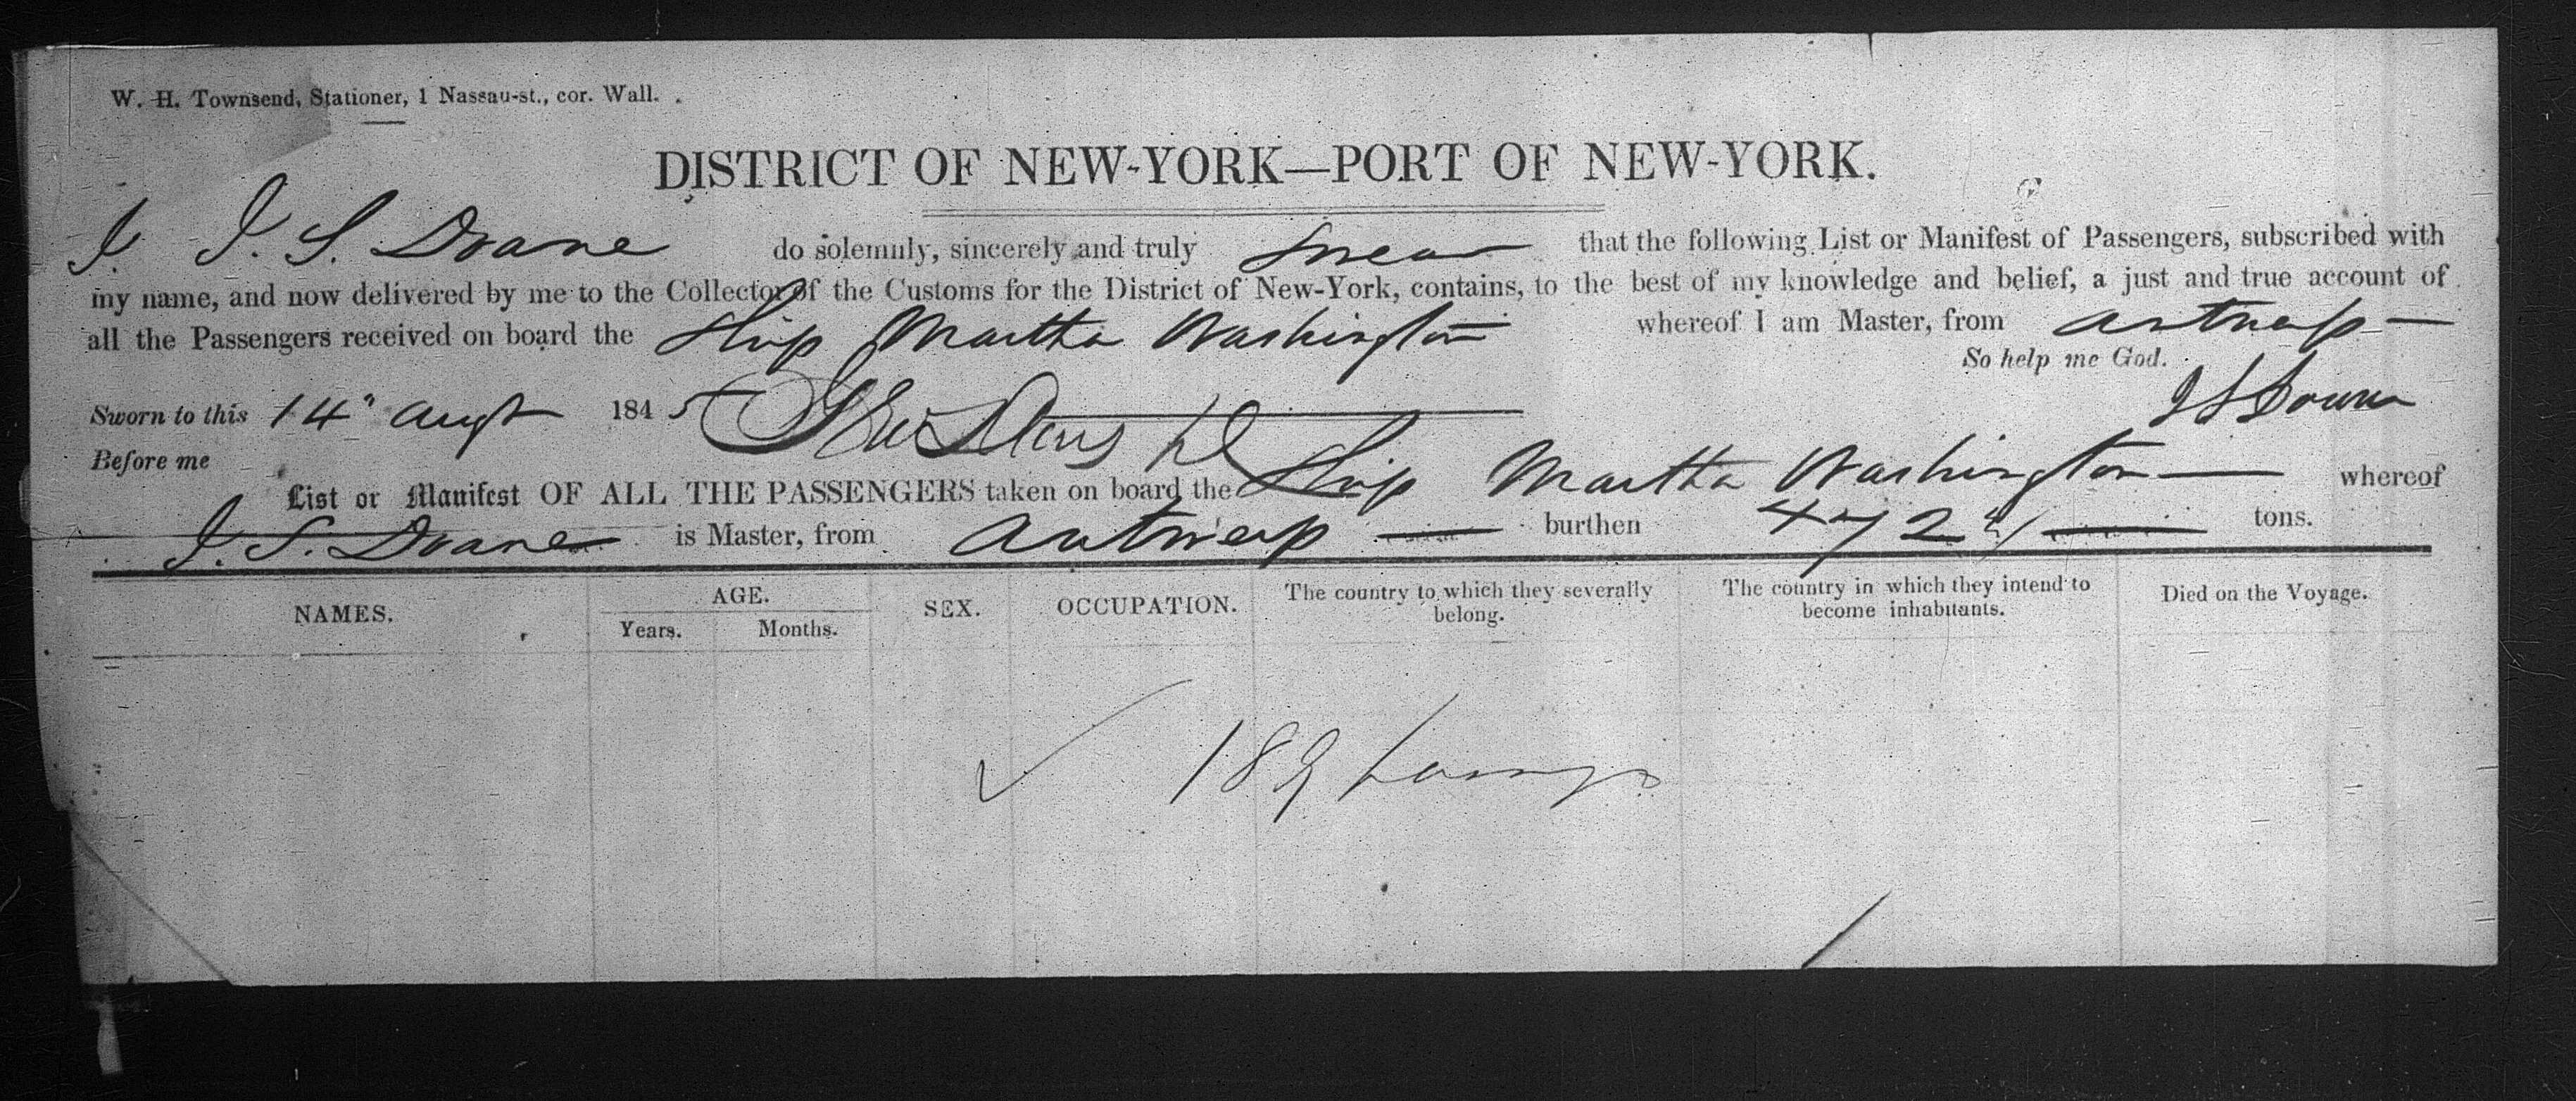 W. H. Townsend, Stationer, 1 Nassau-st., cor. Wall.
DISTRICT OF NEW-YORK—PORT OF NEW-YORK.
I. J. S. Doane do solemnly, sincerely and truly Swear that the following List or Manifest of Passengers, subscribed with
my name, and now delivered by me to the Collector of the Customs for the District of New-York, contains, to the best of my knowledge and belief, a just and true account of
all the Passengers received on board the Ship Martha Washington whereof I am Master, from Antwerp —
So help me God.
Sworn to this 14" Augt 1845 J S Doane
Before me
List or Manifest OF ALL THE PASSENGERS taken on board the Ship Martha Washington — whereof
J. S. Doane is Master, from Antwerp — burthen 472 — tons.
NAMES. AGE. SEX. OCCUPATION. The country to which they severally belong. The country in which they intend to become inhabitants. Died on the Voyage.
Years. Months.
189